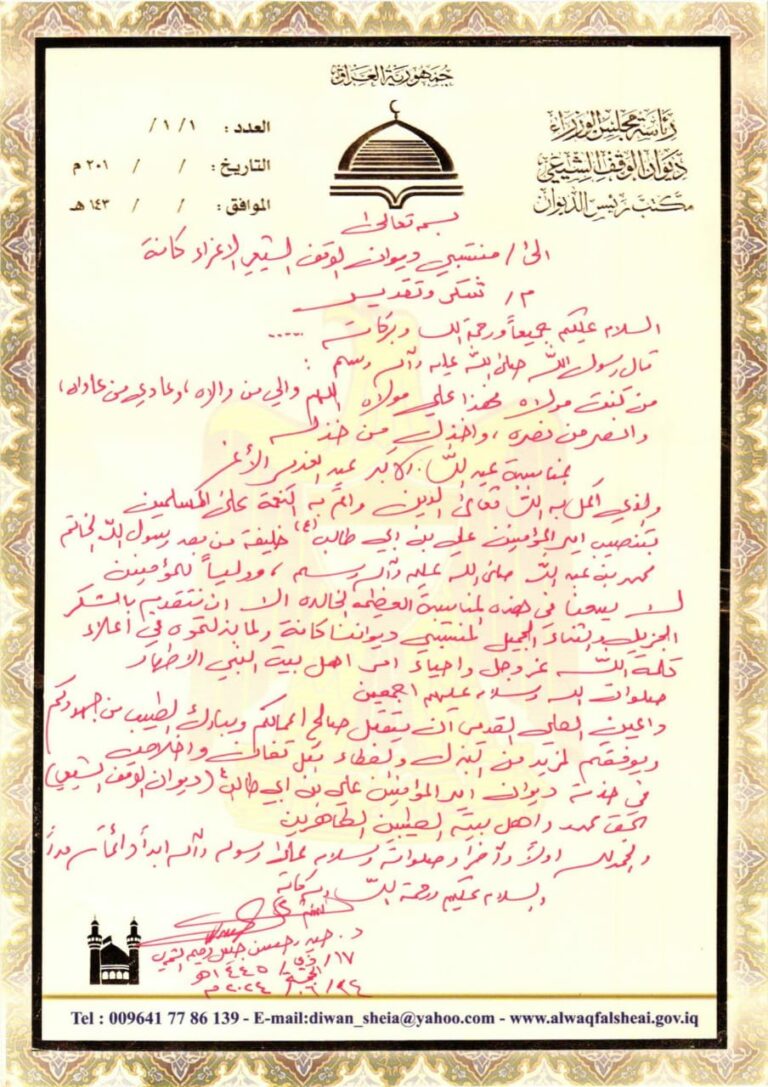 جمهورية العراق
رئاسة مجلس الوزراء
ديوان الوقف الشيعي
مكتب رئيس الديوان
العدد : ١/ ١/
التاريخ : / / ٢٠١ م
الموافق : / / ١٤٣ هـ
بسمه تعالى
الى / منتسبي ديوان الوقف الشيعي الاعزاء كافة
م / شكر وتقدير
السلام عليكم جميعاً ورحمة الله وبركاته ......
قال رسول الله صلى الله عليه وآله وسلم :
من كنت مولاه فهذا علي مولاه اللهم والي من والاه ، وعادي من عاداه ،
وانصر من نصره ، واخذل من خذله
بمناسبة عيد الله الاكبر عيد الغدير الأغر
والذي اكمل به الله تعالى الدين واتم به النعمة على المسلمين
بتنصيب امير المؤمنين علي بن ابي طالب (ع) خليفة من بعد رسول الله الخاتم
محمد بن عبد الله صلى الله عليه وآله وسلم ، وولياً للمؤمنين
لا يسعنا في هذه المناسبة العظيمة الخالده الا ان نتقدم بالشكر
الجزيل والثناء الجميل لمنتسبي ديواننا كافة ولما بذلتموه في أعلاء
كلمة الله عز وجل واحياء امر اهل بيت النبي الاطهار
صلوات الله وسلامه عليهم اجمعين
داعين العلي القدير ان يتقبل صالح اعمالكم ويبارك الطيب من جهودكم
ويوفقكم لمزيد من البذل والعطاء بكل تفان واخلاص
في خدمة ديوان امير المؤمنين علي بن ابي طالب ع (ديوان الوقف الشيعي)
بحق محمد واهل بيته الطيبين الطاهرين
والحمد لله اولاً وآخراً وصلواته وسلامه على رسوله وآله ابداً دائماً سرمداً
والسلام عليكم ورحمة الله وبركاته
د. حيدر حسن الشمري
١٧ / ذي / ١٤٤٥ هـ
الجمعة
٢٠٢٤ م
Tel : 009641 77 86 139 - E-mail:diwan_sheia@yahoo.com - www.alwaqfalsheai.gov.iq